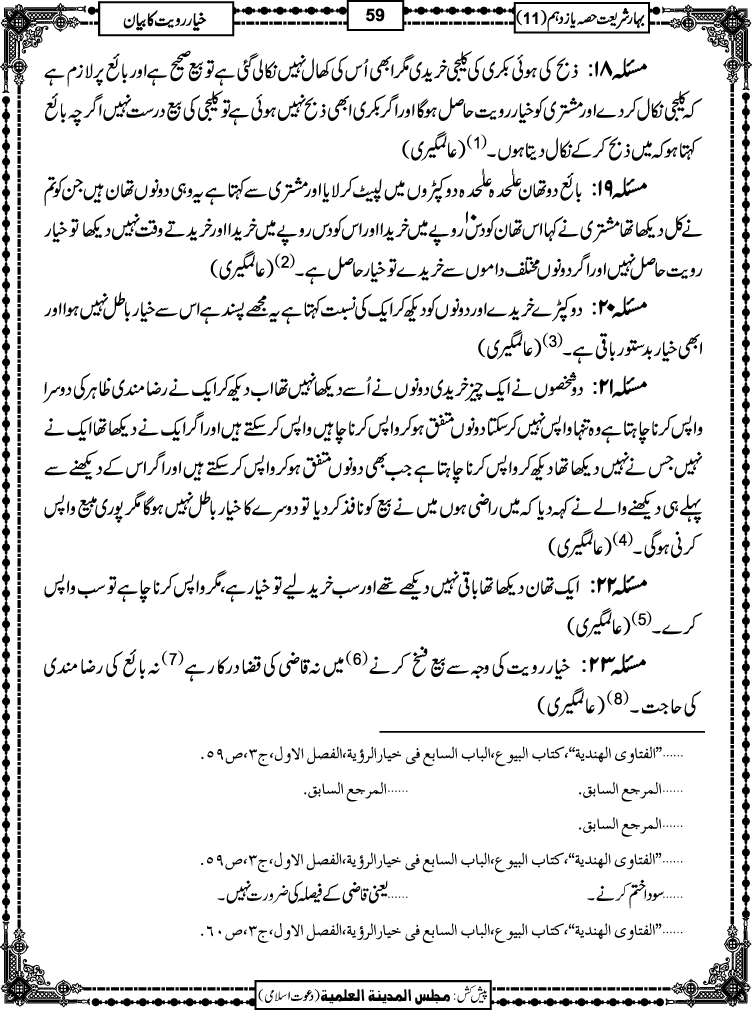 بہار شریعت حصہ یازدہم (11)
59
خیار رویت کا بیان
مسئلہ ۱۸: ذبح کی ہوئی بکری کی کلیجی خریدی مگر ابھی اُس کی کھال نہیں نکالی گئی ہے تو بیع صحیح ہے اور بائع پر لازم ہے
کہ کلیجی نکال کر دے اور مشتری کو خیار رویت حاصل ہوگا اور اگر بکری ابھی ذبح نہیں ہوئی ہے تو کلیجی کی بیع درست نہیں اگرچہ بائع
کہتا ہو کہ میں ذبح کر کے نکال دیتا ہوں۔(1) (عالمگیری)
مسئلہ ۱۹: بائع دو تھان علٰحدہ علٰحدہ دو کپڑوں میں لپیٹ کر لایا اور مشتری سے کہتا ہے یہ وہی دونوں تھان ہیں جن کو تم
نے کل دیکھا تھا مشتری نے کہا اس تھان کو دس۱۰ روپے میں خریدا اور اس کو دس روپے میں خریدا اور خریدتے وقت نہیں دیکھا تو خیار
رویت حاصل نہیں اور اگر دونوں مختلف داموں سے خریدے تو خیار حاصل ہے۔(2) (عالمگیری)
مسئلہ ۲۰: دو کپڑے خریدے اور دونوں کو دیکھ کر ایک کی نسبت کہتا ہے یہ مجھے پسند ہے اس سے خیار باطل نہیں ہوا اور
ابھی خیار بدستور باقی ہے۔(3) (عالمگیری)
مسئلہ ۲۱: دو شخصوں نے ایک چیز خریدی دونوں نے اُسے دیکھا نہیں تھا اب دیکھ کر ایک نے رضامندی ظاہر کی دوسرا
واپس کرنا چاہتا ہے وہ تنہا واپس نہیں کر سکتا دونوں متفق ہو کر واپس کرنا چاہیں واپس کر سکتے ہیں اور اگر ایک نے دیکھا تھا ایک نے
نہیں جس نے نہیں دیکھا تھا دیکھ کر واپس کرنا چاہتا ہے جب بھی دونوں متفق ہو کر واپس کر سکتے ہیں اور اگر اس کے دیکھنے سے
پہلے ہی دیکھنے والے نے کہہ دیا کہ میں راضی ہوں میں نے بیع کو نافذ کر دیا تو دوسرے کا خیار باطل نہیں ہوگا مگر پوری مبیع واپس
کرنی ہوگی۔(4) (عالمگیری)
مسئلہ ۲۲: ایک تھان دیکھا تھا باقی نہیں دیکھے تھے اور سب خرید لیے تو خیار ہے، مگر واپس کرنا چاہے تو سب واپس
کرے۔(5) (عالمگیری)
مسئلہ ۲۳: خیار رویت کی وجہ سے بیع فسخ کرنے(6) میں نہ قاضی کی قضا درکار ہے(7) نہ بائع کی رضامندی
کی حاجت۔(8) (عالمگیری)
......”الفتاوی الھندیة“، کتاب البیوع، الباب السابع فی خیار الرؤیة، الفصل الاول، ج۳، ص۵۹.
......المرجع السابق. ......المرجع السابق.
......المرجع السابق.
......”الفتاوی الھندیة“، کتاب البیوع، الباب السابع فی خیار الرؤیة، الفصل الاول، ج۳، ص۵۹.
......سودا ختم کرنے۔ ......یعنی قاضی کے فیصلہ کی ضرورت نہیں۔
......”الفتاوی الھندیة“، کتاب البیوع، الباب السابع فی خیار الرؤیة، الفصل الاول، ج۳، ص۶۰.
پیش کش: مجلس المدینة العلمیة (دعوت اسلامی)